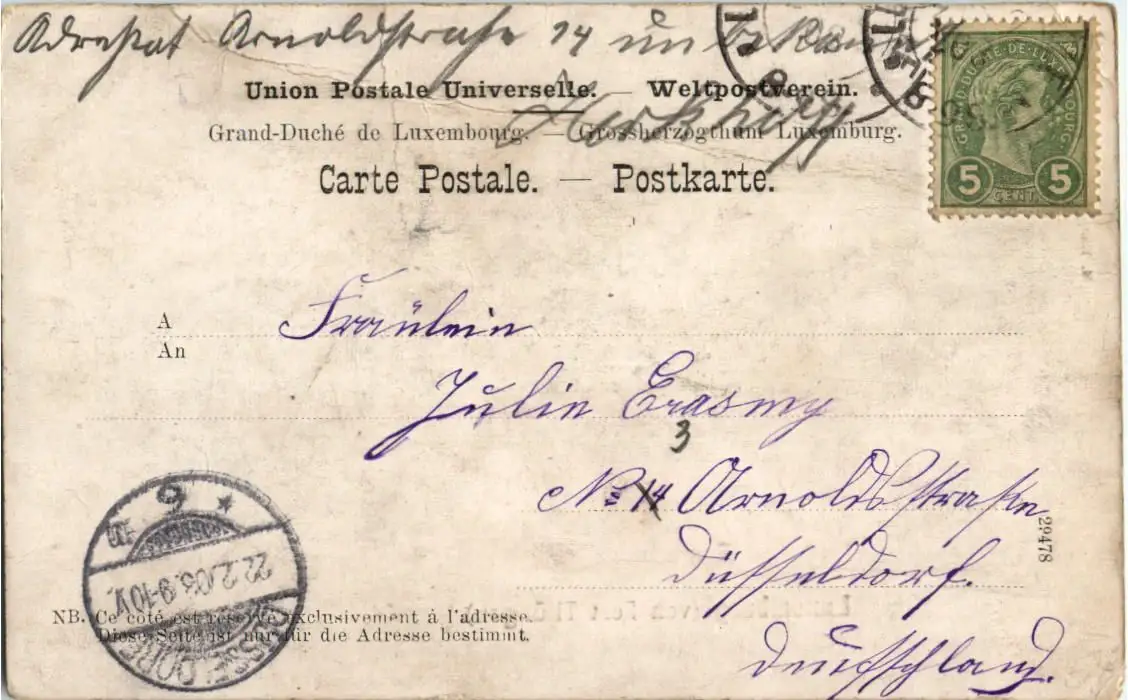 Adressat Arnoldstraße 14 unbekannt
Union Postale Universelle. — Weltpostverein.
Grand-Duché de Luxembourg. — Grossherzogthum Luxemburg.
Carte Postale. — Postkarte.
GRAND-DUCHÉ-DE-LUXEMBOURG
5 5
CENT.
A
An
Fräulein
Julie Erasmy
3
No 14 Arnoldstraße
Düsseldorf.
Deutschland.
29478
22.2.03.9-10V.
NB. Ce côté est réservé exclusivement à l'adresse.
Diese Seite ist nur für die Adresse bestimmt.